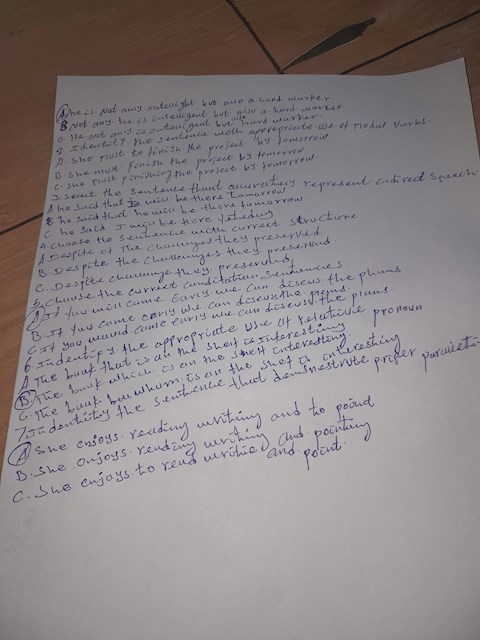 A he is Not any intellight but also a hand worker
B Not any he is intelligent but also a hard worker
C. He Not any is intelligent but also hard worker.
2. Identity the sentence with appropriate use of modal verbs.
A. She must to finish the project by tomorrow
B. She must finish the project by tomorrow
C. She must finishing the project by tomorrow.
3. Select the sentence that accurately represent indired speech
A he said that will be there tumorrow
B he said that he will be there tumorrow
C. he said I will be there
4. Choose the sentence with correct structure
A. Despite of The challenges they preserved
B. Despite the challenges they preserved.
C. Despite challenge they preserved,
5. Choose the correct conditation sentencies
A If you will came early we can discus the plans.
B. If you came early we can discuss the plans
C If you would came early we can discuss the plans
6. Indentify the appropriate use of relative pronoun
A The book that is on the shelf is interesting
B. The book which is on the shelf interesting
C. The book whom is on the shelf is interesting
7. Identity the sentence that demonstrate proper
A She enjoys reading writing and to point
B. She enjoys reading writing and pointing
C. She enjoys to read and point.